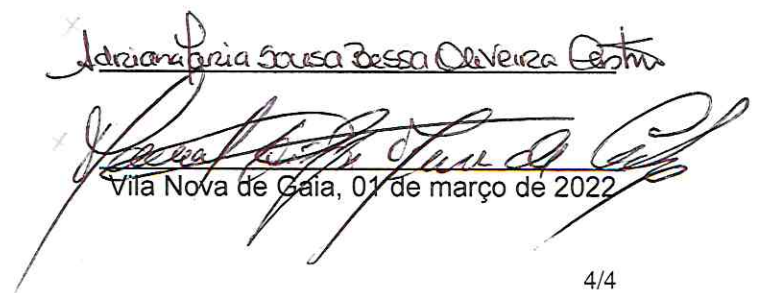 Adriana Maria Sousa Bessa Oliveira Castro
de
Vila Nova de Gaia, 01 de março de 2022
4/4